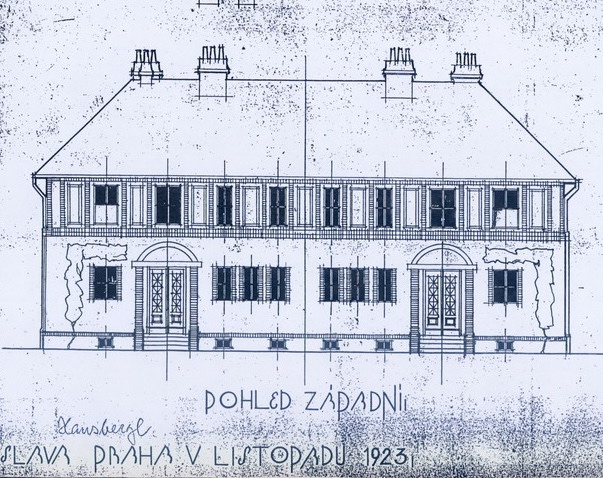 POHLED ZÁPADNÍ
SLAVA PRAHA V LISTOPADU 1923